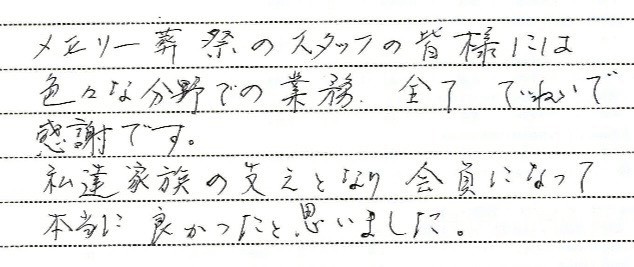 メモリー葬祭のスタッフの皆様には
色々な分野での業務、全て ていねいで
感謝です。
私達家族の支えとなり 会員になって
本当に良かったと思いました。